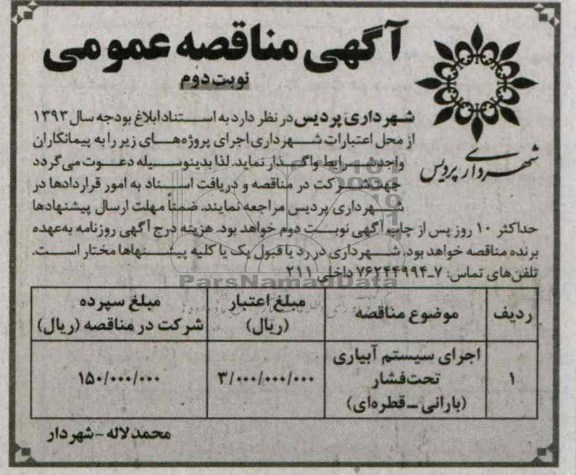 آگهی مناقصه عمومی
نوبت دوم
شهرداری پردیس
شهرداری پردیس در نظر دارد به استناد ابلاغ بودجه سال ۱۳۹۳
از محل اعتبارات شهرداری اجرای پروژه‌های زیر را به پیمانکاران
واجد شرایط واگذار نماید. لذا بدینوسیله دعوت می‌گردد
جهت شرکت در مناقصه و دریافت اسناد به امور قراردادها در
شهرداری پردیس مراجعه نمایند. ضمناً مهلت ارسال پیشنهادها
حداکثر ۱۰ روز پس از چاپ آگهی نوبت دوم خواهد بود. هزینه درج آگهی روزنامه به‌عهده
برنده مناقصه خواهد بود. شهرداری در رد یا قبول یک یا کلیه پیشنهادها مختار است.
تلفن‌های تماس: ۷-۷۶۲۴۴۹۹۴ داخلی ۲۱۱
ParsNamadData
ردیف موضوع مناقصه مبلغ اعتبار (ریال) مبلغ سپرده شرکت در مناقصه (ریال)
۱ اجرای سیستم آبیاری تحت‌فشار (بارانی - قطره‌ای) ۳/۰۰۰/۰۰۰/۰۰۰ ۱۵۰/۰۰۰/۰۰۰
محمد لاله - شهردار